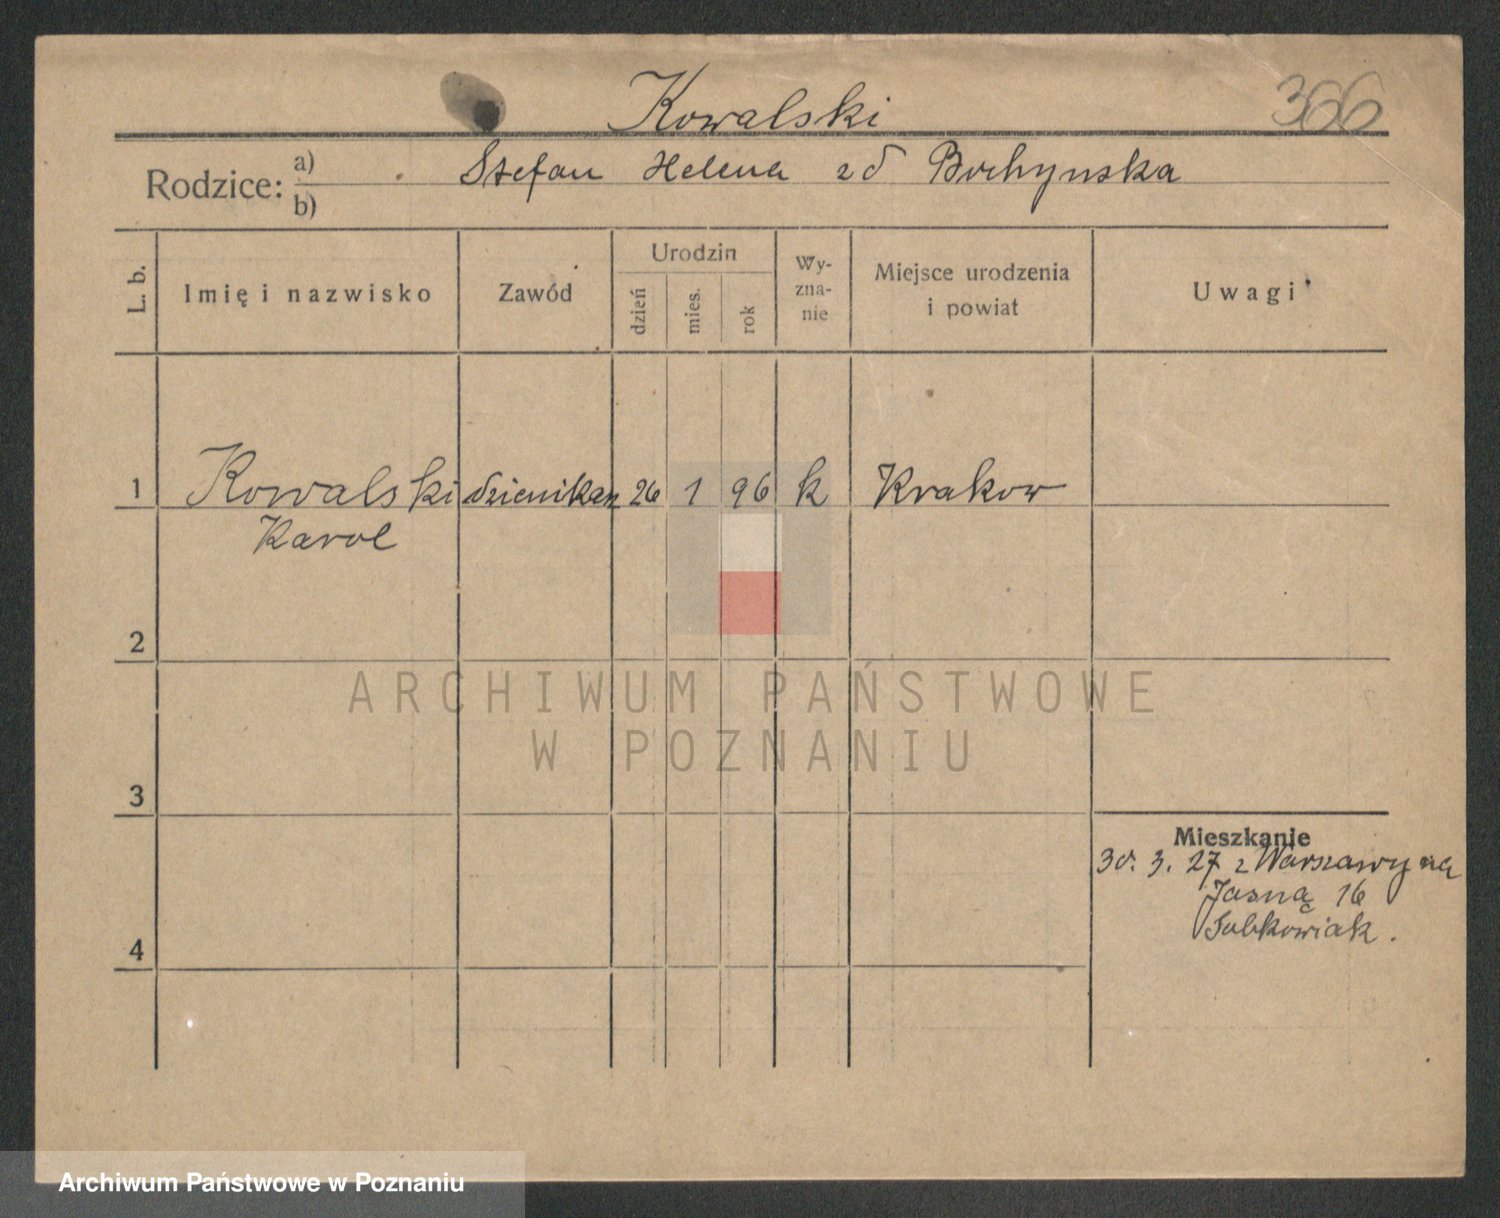 Kowalski 366
Rodzice: a) Stefan Helena zd Bochynska
b)
L. b.
Imię i nazwisko
Zawód
Urodzin
dzień
mies.
rok
Wy-
zna-
nie
Miejsce urodzenia
i powiat
Uwagi
1 Kowalski dzienikarz 26 1 96 k Krakow
Karol
2
ARCHIWUM PAŃSTWOWE
W POZNANIU
3
Mieszkanie
30. 3. 27 z Warszawy na
Jasną 16
4
Archiwum Państwowe w Poznaniu